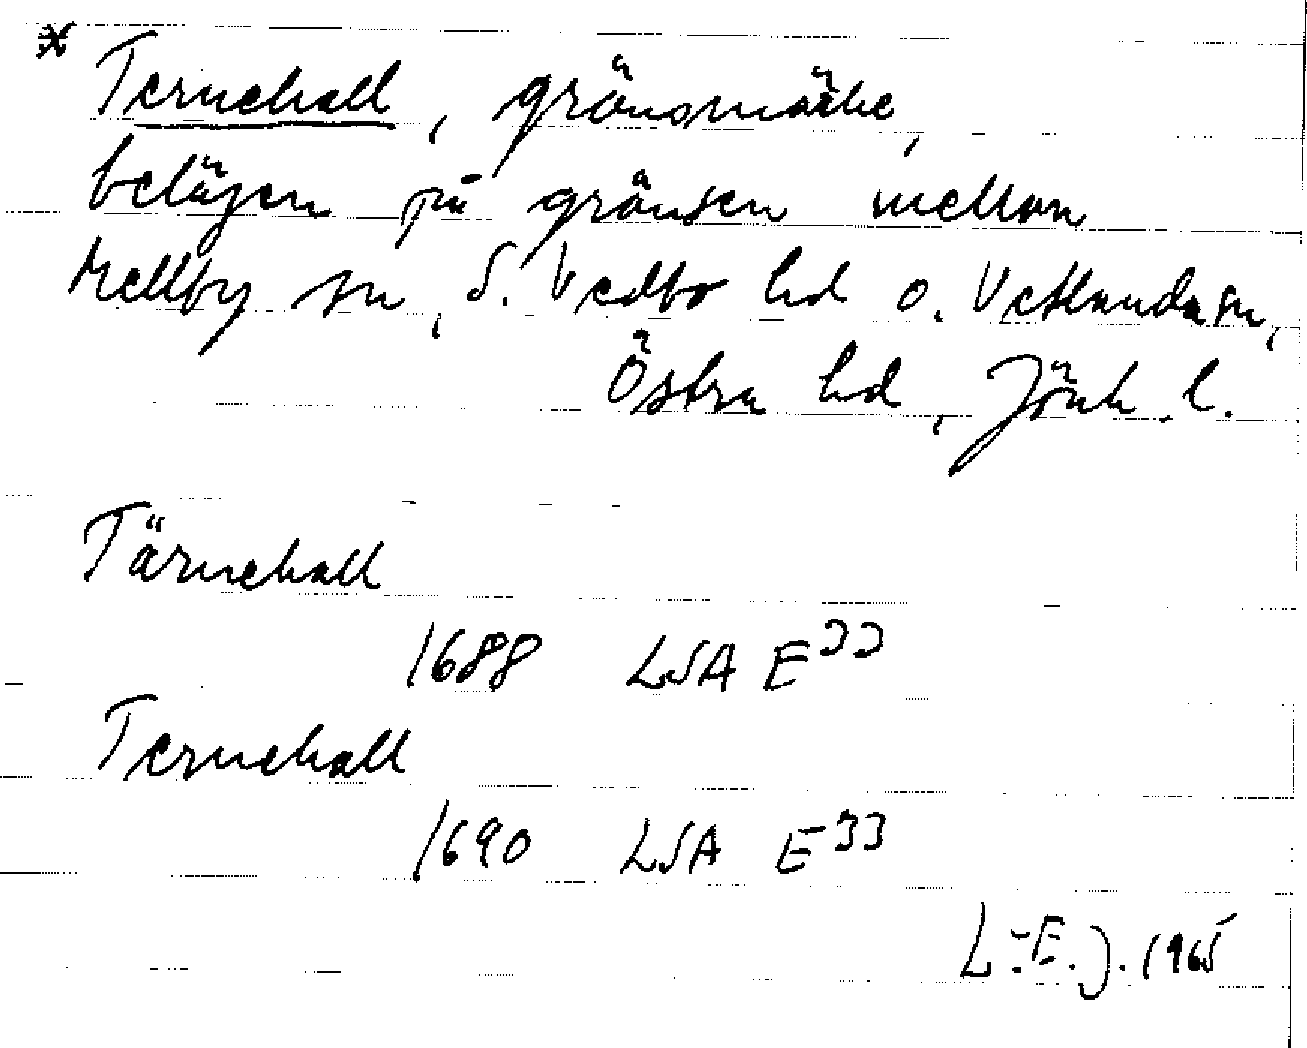 * Ternehall, gränsmärke,
belägen på gränsen mellan
Mellby sn, S. Vedbo hd o. Vetlanda sn,
Östra hd, Jönk. l.
Tärnehall
1688 LSA E³³
Ternehall
1690 LSA E³³
L-E. J. 1965